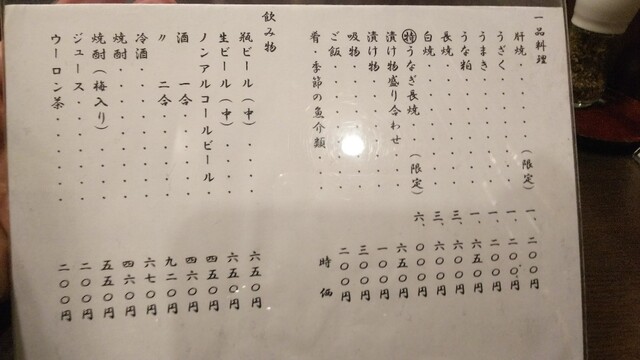 一品料理
肝焼・・・・・(限定) 一、二〇〇円
うざく・・・・・・・ 一、二〇〇円
うまき・・・・・・・ 一、二〇〇円
うな粕・・・・・・・ 一、六五〇円
長焼・・・・・・・・ 三、六〇〇円
白焼・・・・・・・・ 三、六〇〇円
㊕うなぎ長焼・・(限定) 六、〇〇〇円
漬け物盛り合わせ・・ 六五〇円
漬け物・・・・・・・ 一〇〇円
吸物・・・・・・・・ 三〇〇円
ご飯・・・・・・・・ 二〇〇円
肴・季節の魚介類・・ 時価
飲み物
瓶ビール(中)・・・ 六五〇円
生ビール(中)・・・ 六五〇円
ノンアルコールビール・ 四五〇円
酒 一合・・・・・ 四六〇円
〃 二合・・・・・ 九二〇円
冷酒・・・・・・・・ 六七〇円
焼酎・・・・・・・・ 四六〇円
焼酎(梅入り)・・・ 五五〇円
ジュース・・・・・・ 二〇〇円
ウーロン茶・・・・・ 二〇〇円